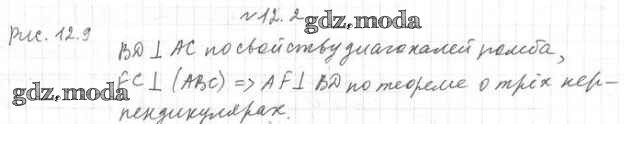 №12.2
gdz.moda
Рис. 12.9
BD ⊥ AC по свойству диагоналей ромба,
FC ⊥ (ABC) => AF ⊥ BD по теореме о трёх пер-
gdz.moda
пендикулярах.